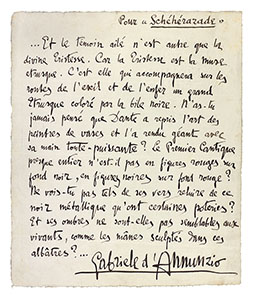 Pour « Schéhérazade »
...Et le témoin ailé n'est autre que la
divine Tristesse. Car la Tristesse est la muse
étrusque. C'est elle qui accompagnera sur les
routes de l'exil et de l'enfer un grand
Etrusque coloré par la bile noire. N'as-tu
jamais pensé que Dante a repris l'art des
peintres de vases et l'a rendu géant avec
sa main toute-puissante? Le Premier Cantique
presque entier n'est-il pas en figures rouges sur
fond noir, en figures noires sur fond rouge?
Ne vois-tu pas tels de ses vers reluire de ce
noir métallique qu'ont certaines poteries?
Et ses ombres ne sont-elles pas semblables aux
vivants, comme les mânes sculptés dans ces
albâtres?...
Gabriele d'Annunzio